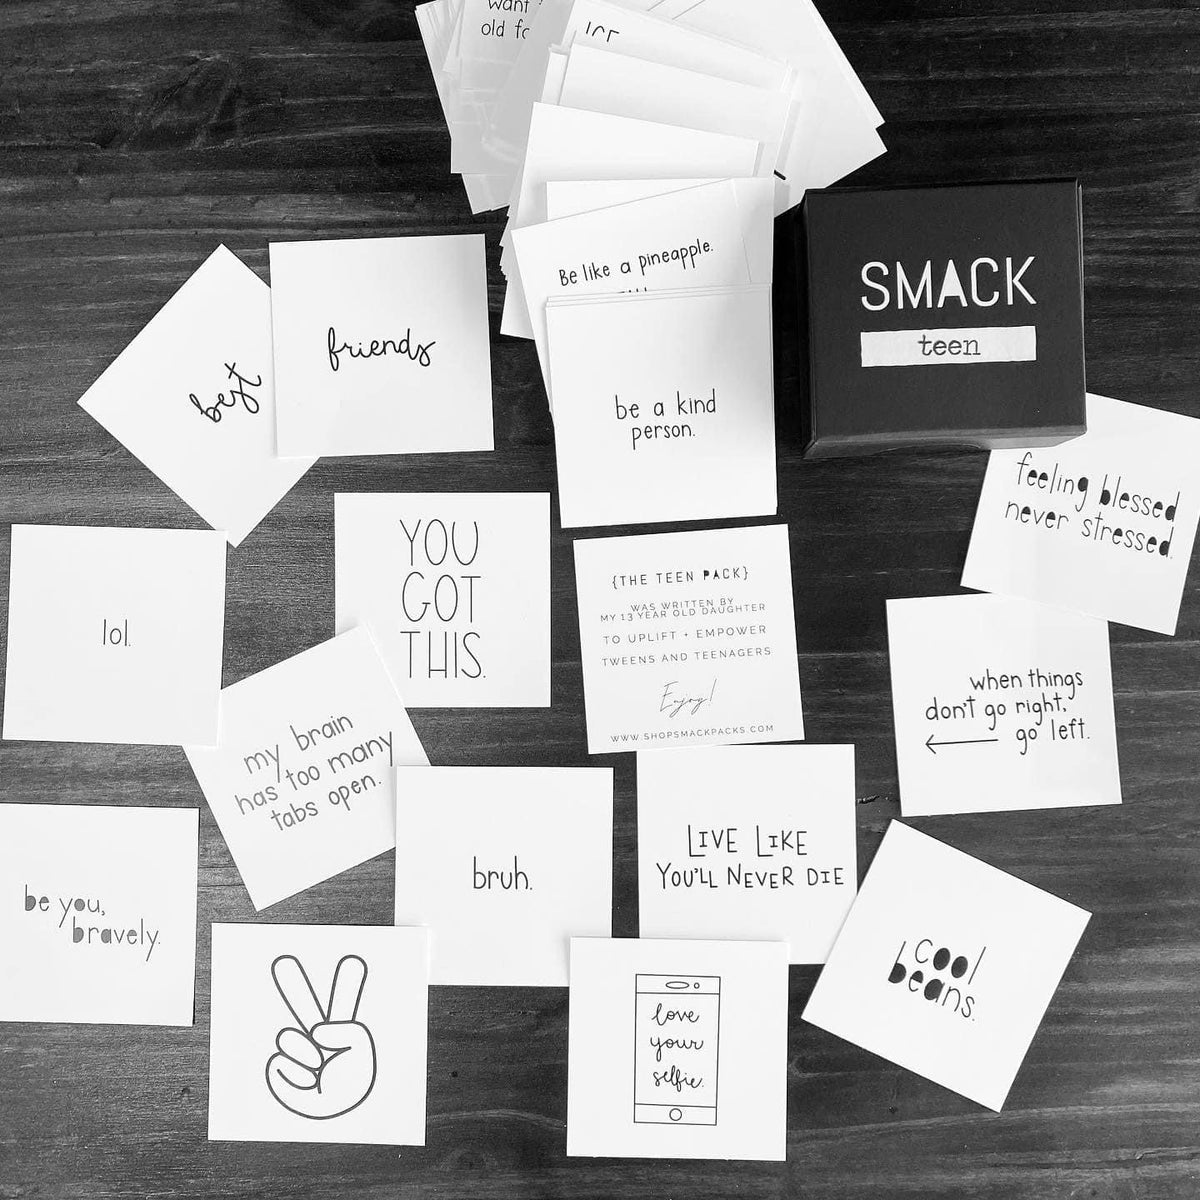 want
old
Be like a pineapple.
SMACK
teen
best
friends
be a kind
person.
feeling blessed
never stressed.
YOU
GOT
THIS.
lol.
{THE TEEN PACK}
WAS WRITTEN BY
MY 13 YEAR OLD DAUGHTER
TO UPLIFT + EMPOWER
TWEENS AND TEENAGERS
Enjoy!
WWW.SHOPSMACKPACKS.COM
when things
don't go right,
go left.
my brain
has too many
tabs open.
bruh.
LIVE LIKE
YOU'LL NEVER DIE
be you,
bravely.
cool
beans.
love
your
selfie.